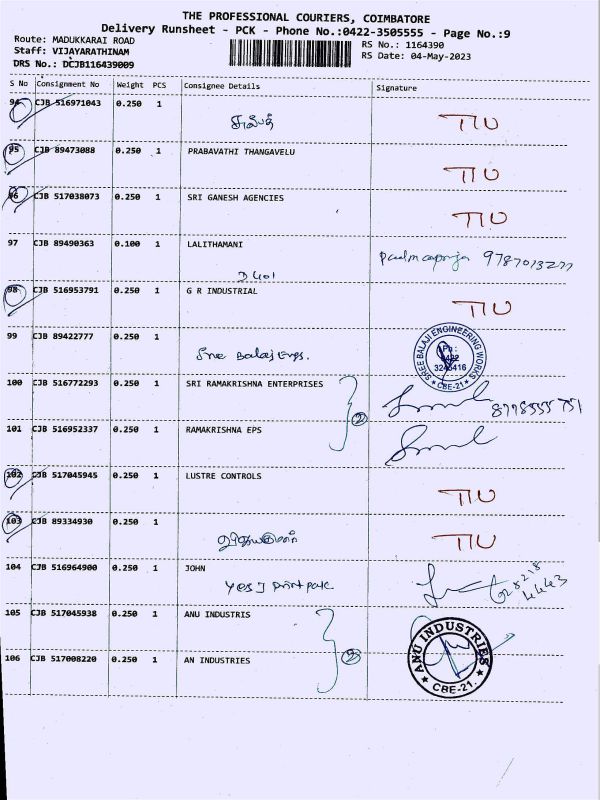 THE PROFESSIONAL COURIERS, COIMBATORE
Delivery Runsheet - PCK - Phone No.:0422-3505555 - Page No.:9
Route: MADUKKARAI ROAD
RS No.: 1164390
Staff: VIJAYARATHINAM
RS Date: 04-May-2023
DRS No.: DCJB116439009
S No Consignment No Weight PCS Consignee Details Signature
94 CJB 516971043 0.250 1
TIU
95 CJB 89473088 0.250 1 PRABAVATHI THANGAVELU
TIU
96 CJB 517038073 0.250 1 SRI GANESH AGENCIES
TIU
97 CJB 89490363 0.100 1 LALITHAMANI
9787013277
D 401
98 CJB 516953791 0.250 1 G R INDUSTRIAL
TIU
99 CJB 89422777 0.250 1
Sree Balaj Engs.
SREE BALAJI ENGINEERING WORKS
Ph :
0422
3245416
CBE-21
100 CJB 516772293 0.250 1 SRI RAMAKRISHNA ENTERPRISES
2
101 CJB 516952337 0.250 1 RAMAKRISHNA EPS
102 CJB 517045945 0.250 1 LUSTRE CONTROLS
TIU
103 CJB 89334930 0.250 1
TIU
104 CJB 516964900 0.250 1 JOHN
Yes J Print pack
105 CJB 517045938 0.250 1 ANU INDUSTRIS
2
ANU INDUSTRIES
CBE-21.
106 CJB 517008220 0.250 1 AN INDUSTRIES